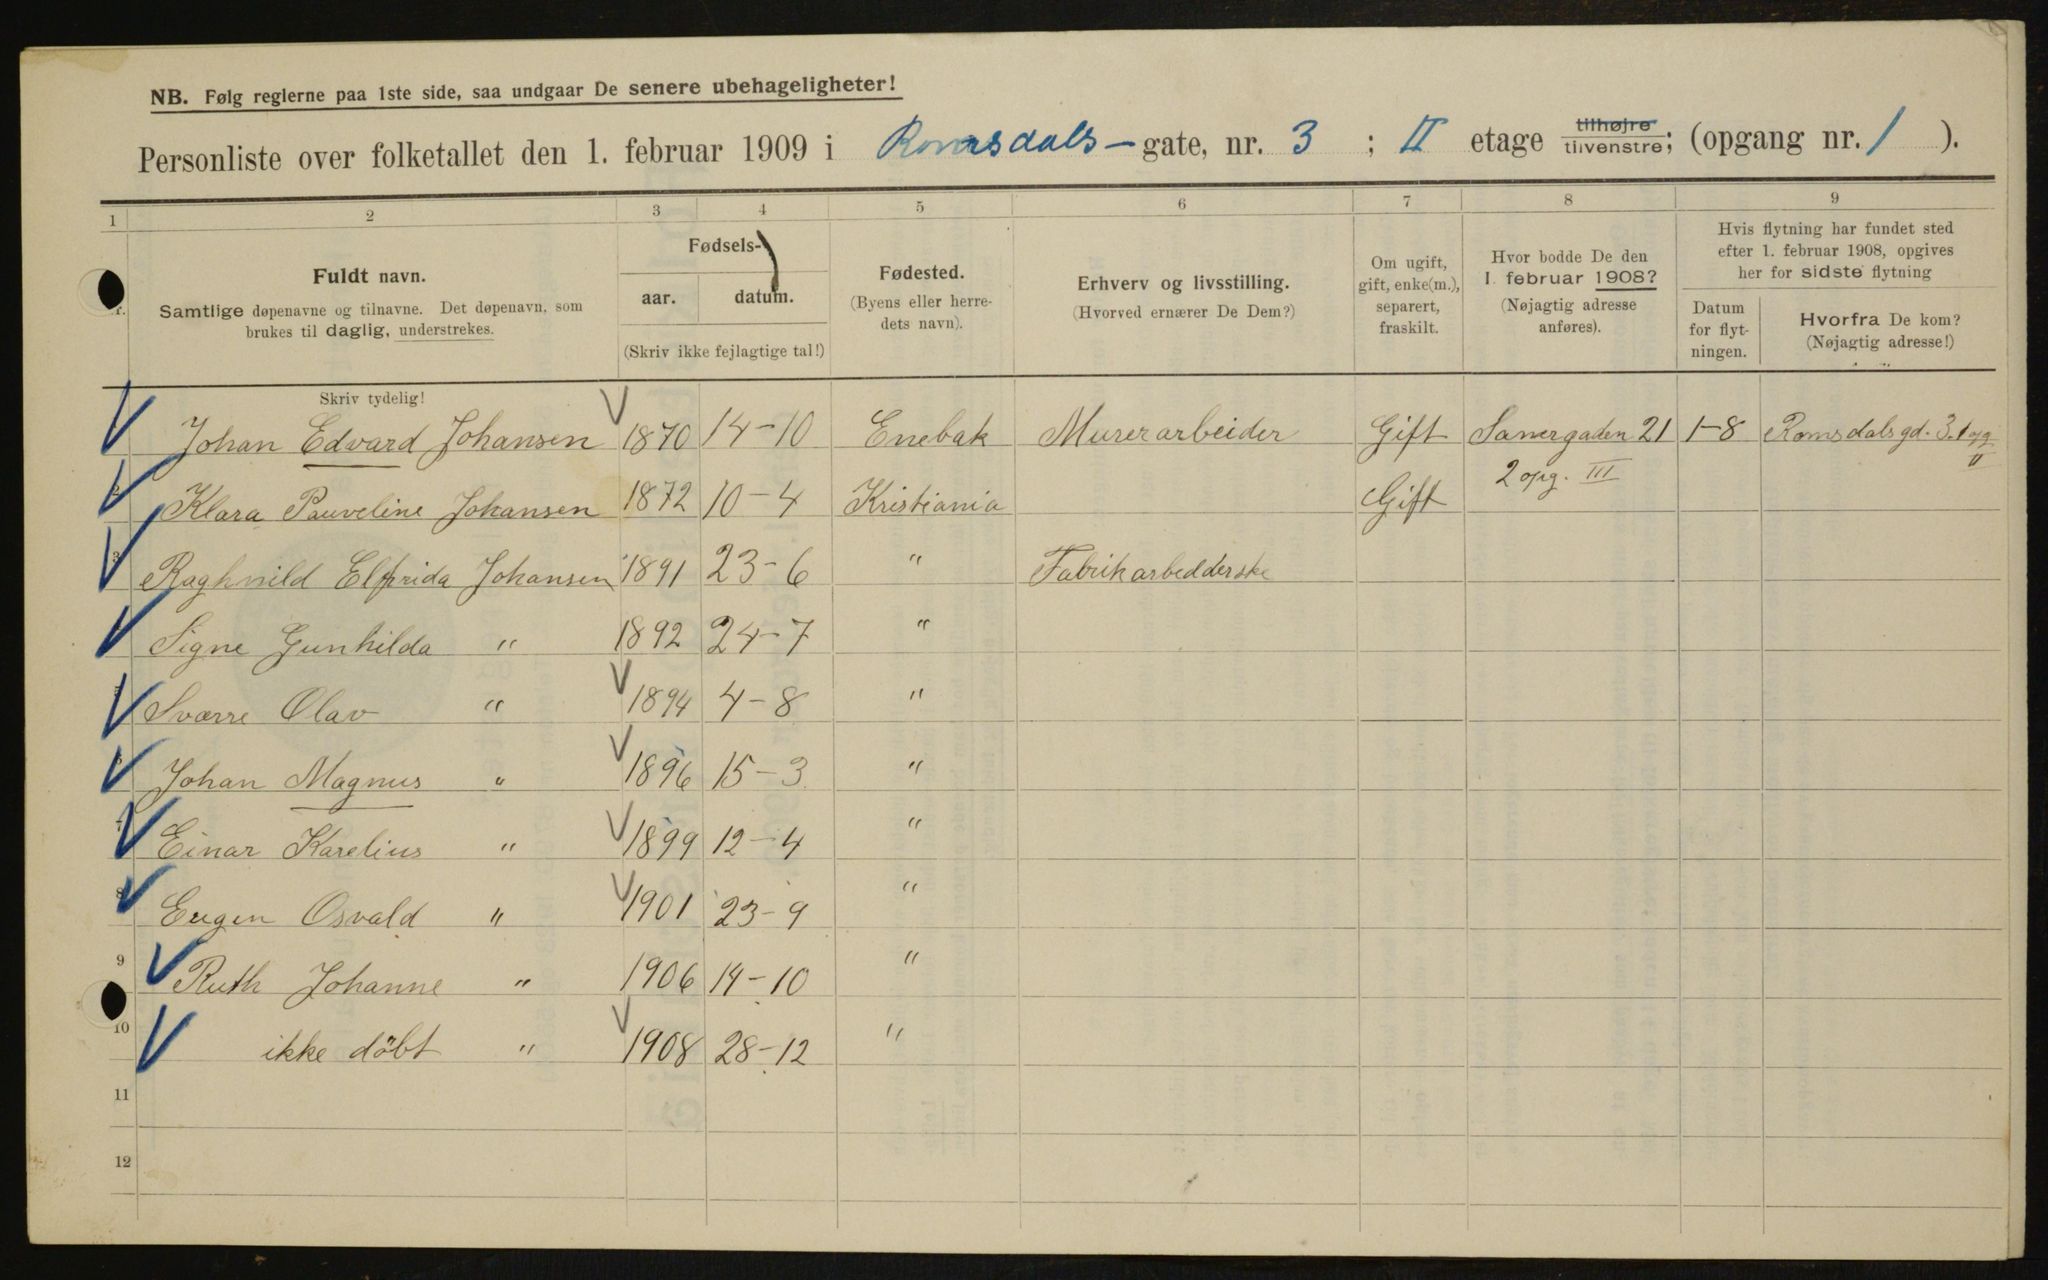 NB. Følg reglerne paa 1ste side, saa undgaar De senere ubehageligheter!
Personliste over folketallet den 1. februar 1909 i Romsdals-gate, nr. 3 ; II etage tilhøjre tilvenstre; (opgang nr. 1 ).
1 2 3 4 5 6 7 8 9
Fuldt navn.
Samtlige døpenavne og tilnavne. Det døpenavn, som
brukes til daglig, understrekes.
Fødsels-
aar. datum.
(Skriv ikke fejlagtige tal!)
Fødested.
(Byens eller herre-
dets navn).
Erhverv og livsstilling.
(Hvorved ernærer De Dem?)
Om ugift,
gift, enke(m.),
separert,
fraskilt.
Hvor bodde De den
1. februar 1908?
(Nøjagtig adresse
anføres).
Hvis flytning har fundet sted
efter 1. februar 1908, opgives
her for sidste flytning
Datum
for flyt-
ningen.
Hvorfra De kom?
(Nøjagtig adresse!)
Skriv tydelig!
Johan Edvard Johansen 1870 14-10 Enebak Murerarbeider Gift Sanergaden 21 1-8 Romsdalsgd. 3. 1 opg II
2 opg. III
2 Klara Pauveline Johansen 1872 10-4 Kristiania Gift
3 Raghnild Elfrida Johansen 1891 23-6 " Fabrikarbedderske
Signe Gunhilda " 1892 24-7 "
5 Sværre Olav " 1894 4-8 "
6 Johan Magnus " 1896 15-3 "
7 Einar Karelius " 1899 12-4 "
8 Eugen Osvald " 1901 23-9 "
9 Ruth Johanne " 1906 14-10 "
10 ikke döbt " 1908 28-12 "
11
12